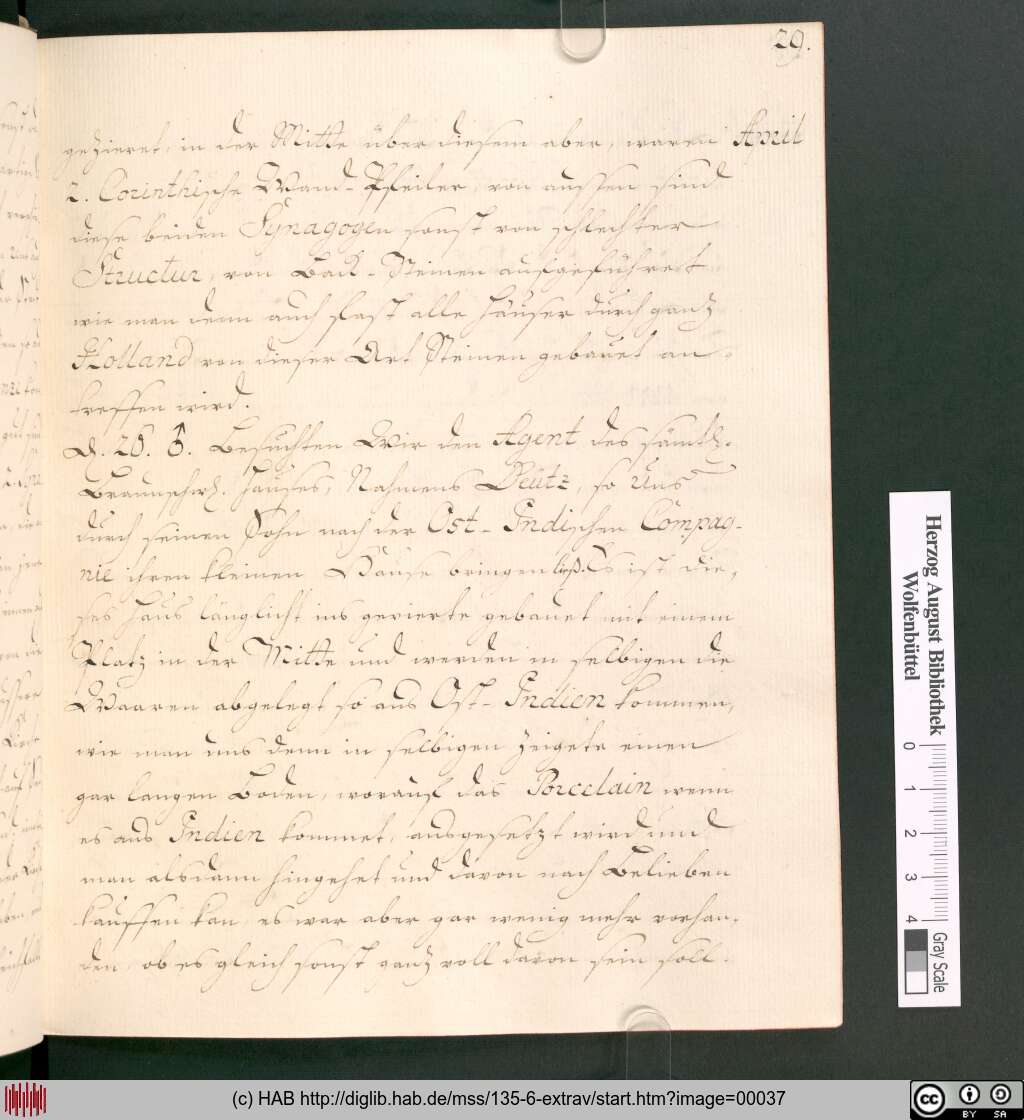 29.
gezieret, in der Mitte über diesem aber, waren April
2. Corinthische Wand-Pfeiler, von aussen sind
diese beiden Synagogen sonst von schlechter
Structur, von Back-Steinen aufgeführet
wie man denn auch fast alle Häuser durch gantz
Holland von dieser Art Steinen gebauet an-
treffen wird.
D. 26. ♂. Besuchten Wir den Agent des sämtl.
Braunschw. Hauses, Nahmens Deütz, so Uns
durch seinen Sohn nach der Ost-Indischen Compag-
nie ihren kleinen Hause bringen ließ. Es ist die-
ses Haus länglicht ins gevierte gebauet mit einem
Platz in der Mitte und werden in selbigen die
Waaren abgelegt so aus Ost-Indien kommen,
wie man uns denn in selbigen zeigete einen
gar langen Boden, worauf das Porcelain wenn
es aus Indien kommet, ausgesetzt wird und
man alsdann hingehet und davon nach Belieben
kauffen kan, es war aber gar wenig mehr vorhan-
den, ob es gleich sonst gantz voll davon sein soll.
Herzog August Bibliothek
Wolfenbüttel
0 1 2 3 4
Gray Scale
(c) HAB http://diglib.hab.de/mss/135-6-extrav/start.htm?image=00037
cc BY SA